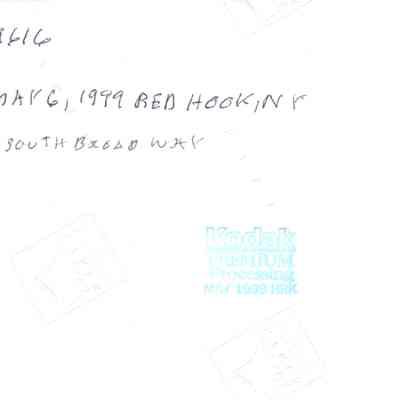 8616
MAY 6, 1999 RED HOOK, N Y
SOUTH BROADWAY
Kodak
PREMIUM
Processing
MAY 1999 HRK